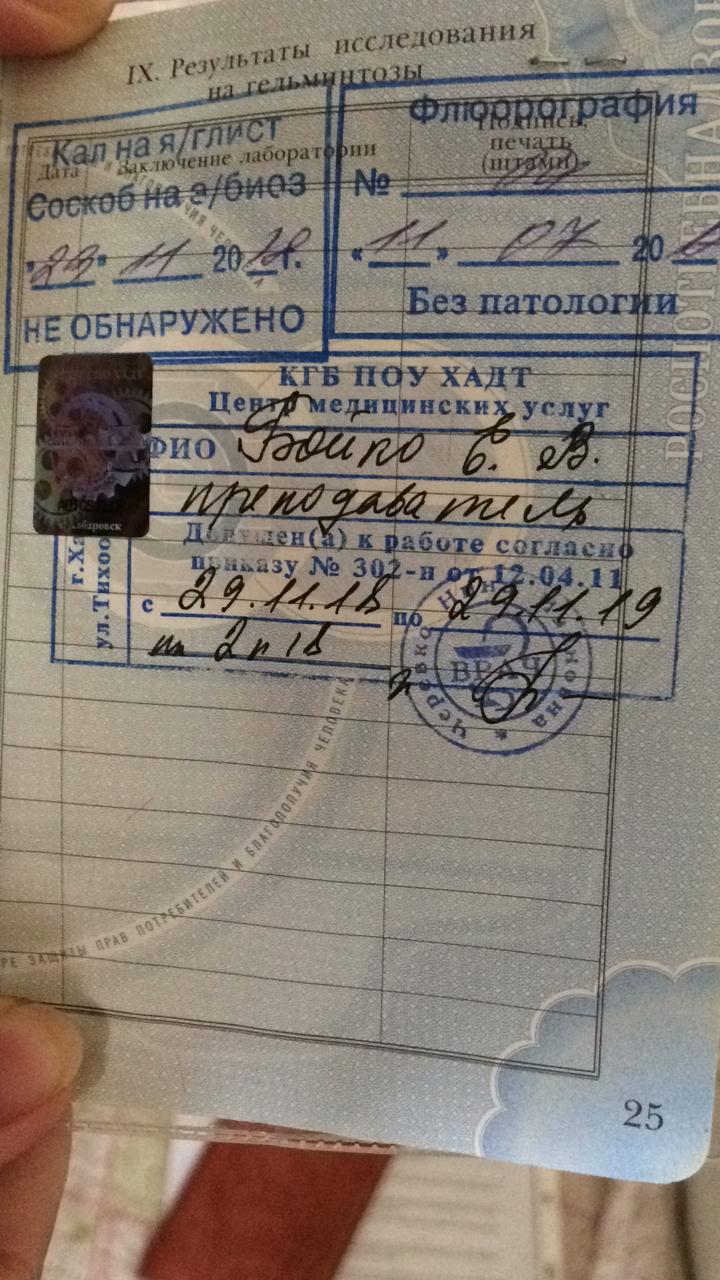 IX. Результаты исследования
на гельминтозы
Дата
Заключение лаборатории
Подпись,
печать
(штамп)
Кал на я/глист
Соскоб на э/биоз
"29" 11 2018г.
НЕ ОБНАРУЖЕНО
Флюорография
№
«11» 07 20
Без патологии
КГБ ПОУ ХАДТ
Центр медицинских услуг
ФИО Бойко Е. В.
преподаватель
Допущен(а) к работе согласно
приказу № 302-н от 12.04.11
с 29.11.18 по 29.11.19
г.Ха
ул.Тихоо
Хабаровск
ВРАЧ
Черевко
РОСПОТРЕБНАДЗОР
РЕ ЗАЩИТЫ ПРАВ ПОТРЕБИТЕЛЕЙ И БЛАГОПОЛУЧИЯ ЧЕЛОВЕКА
25